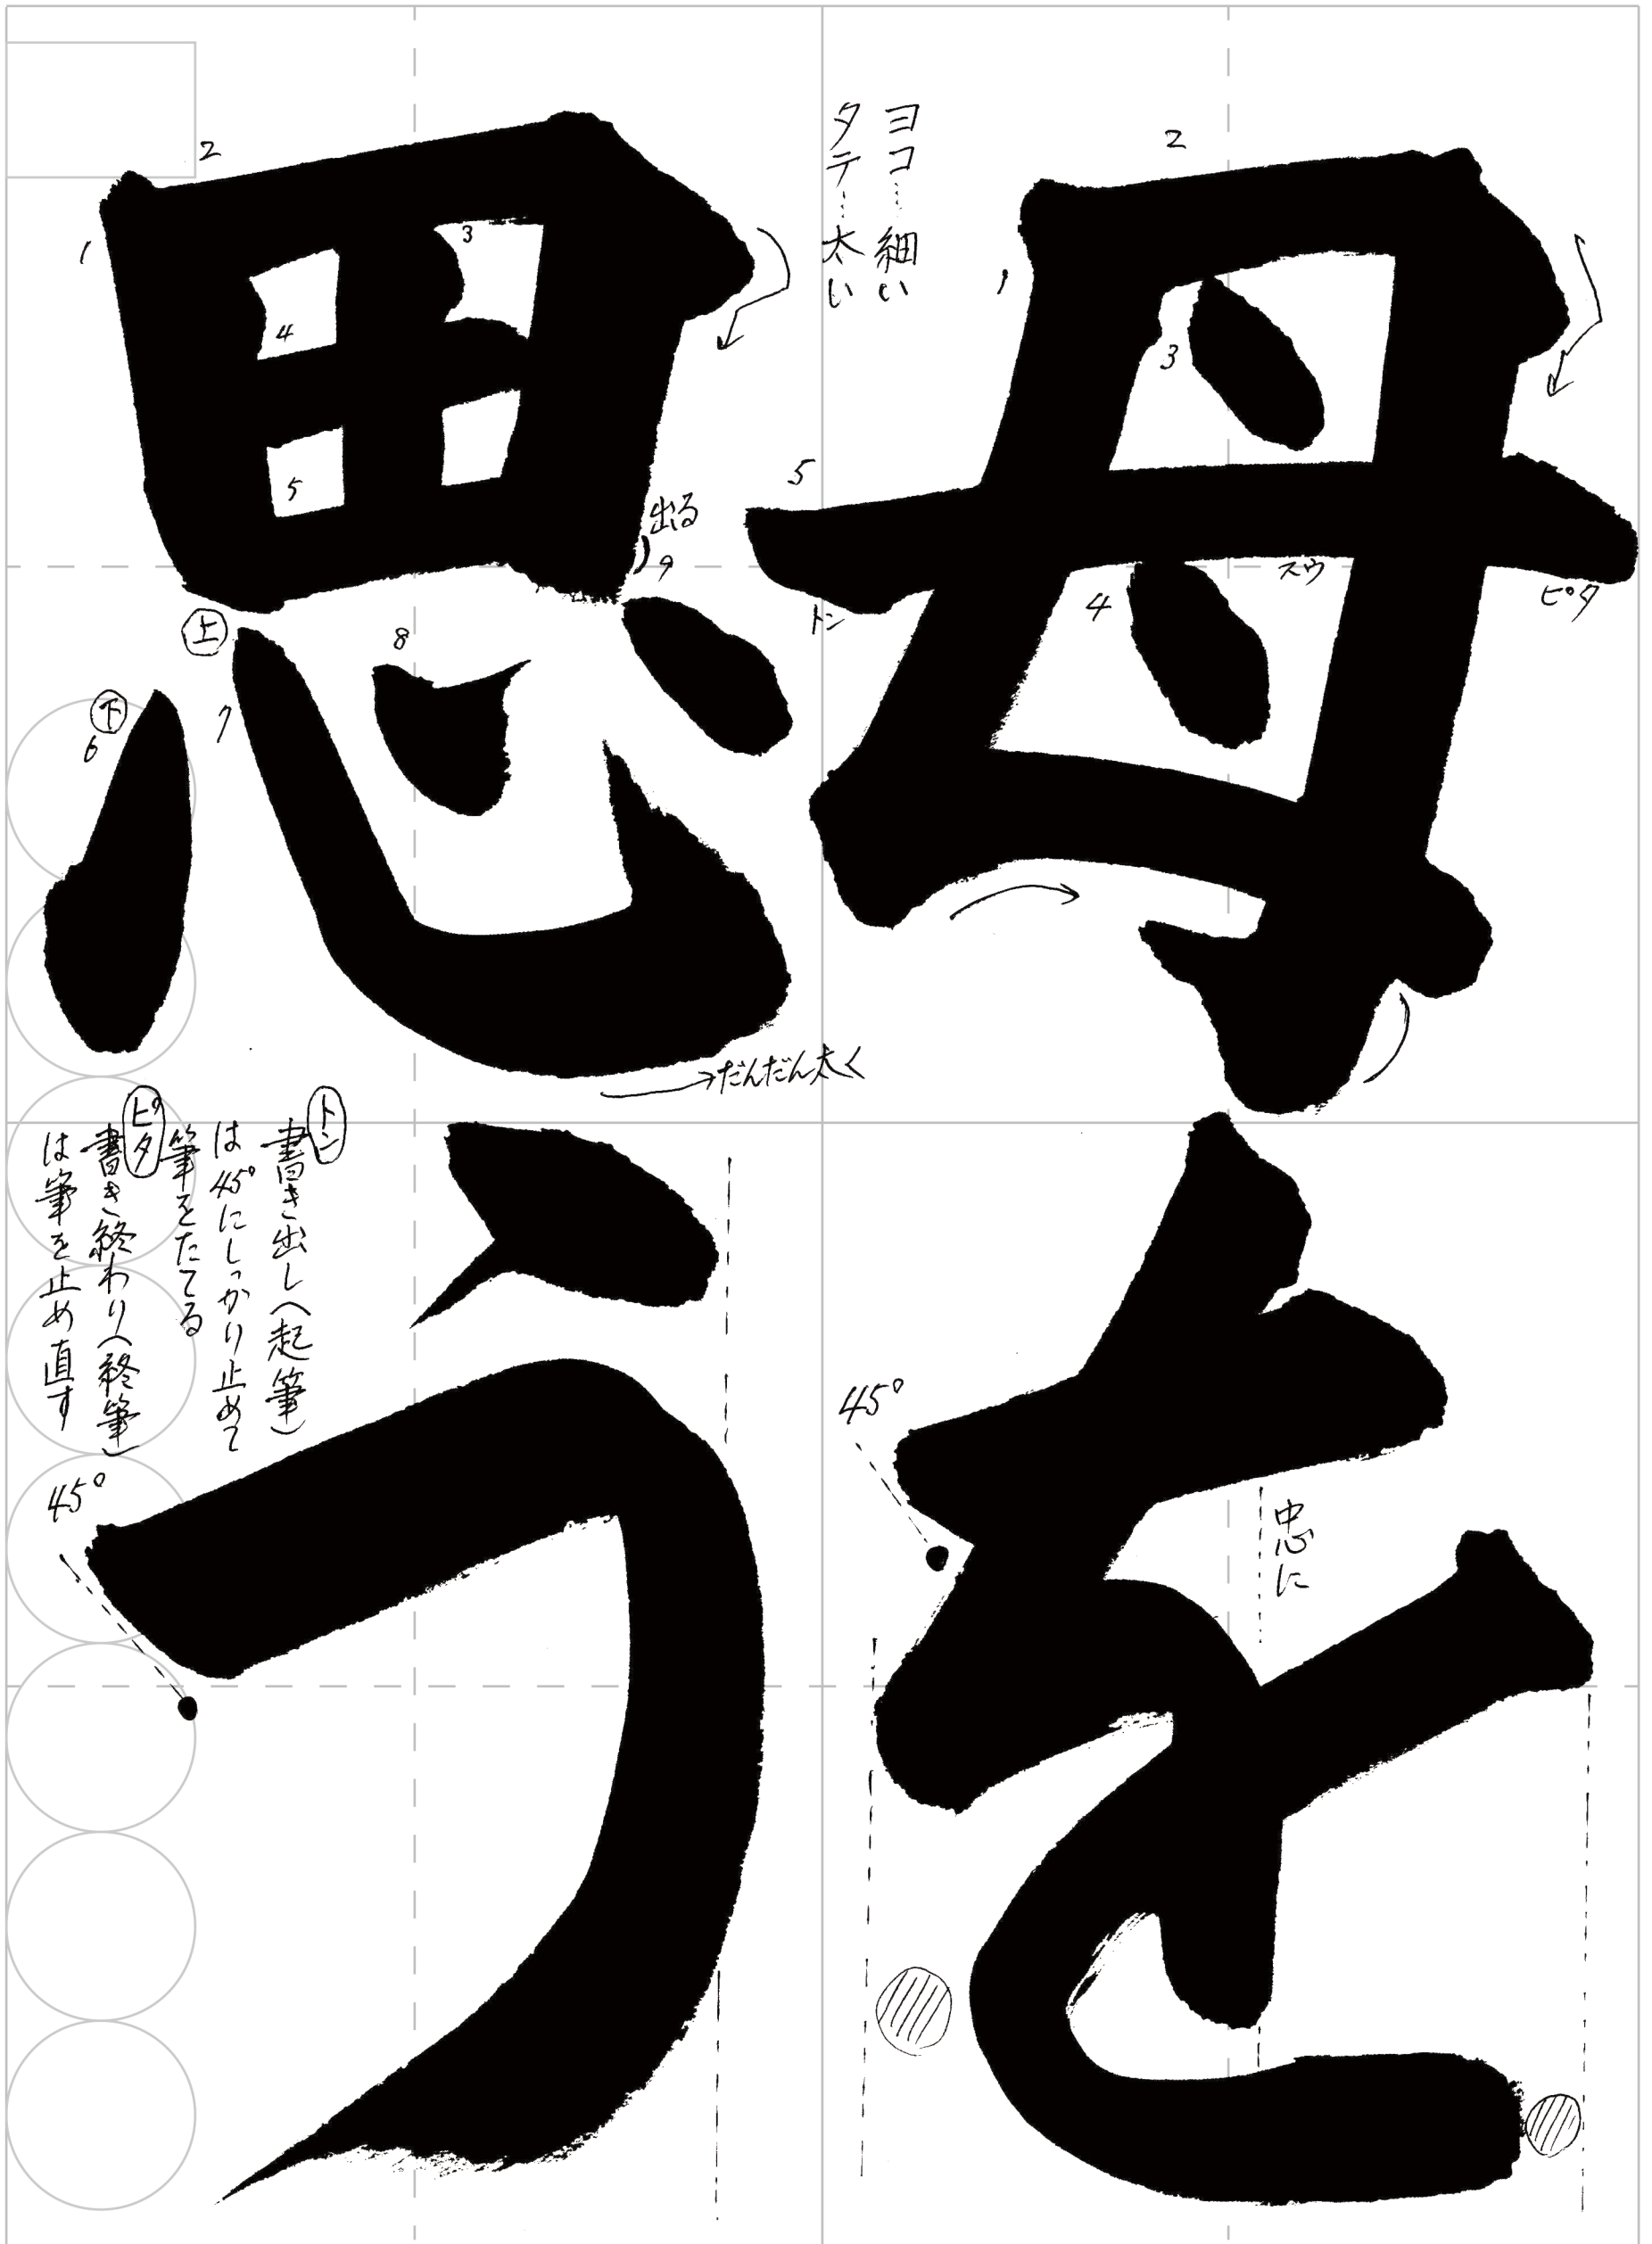 母を
思う
ヨコ…細い
タテ…太い
1
2
3
4
5
トン
スウ
ピタ
45°
中心に
1
2
3
4
5
出る
9
上
8
下
7
6
だんだん太く
トン
書き出し(起筆)
は45°にしっかり止めて
筆をたてる
ピタ
書き終わり(終筆)
は筆を止め直す
45°